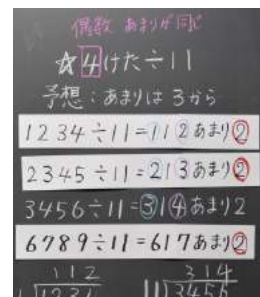 偶数 あまりが同じ
☆4けた÷11
予想：あまりは3から
1234÷11=112あまり2
2345÷11=213あまり2
3456÷11=314あまり2
6789÷11=617あまり2
112
314
1234
11)3456